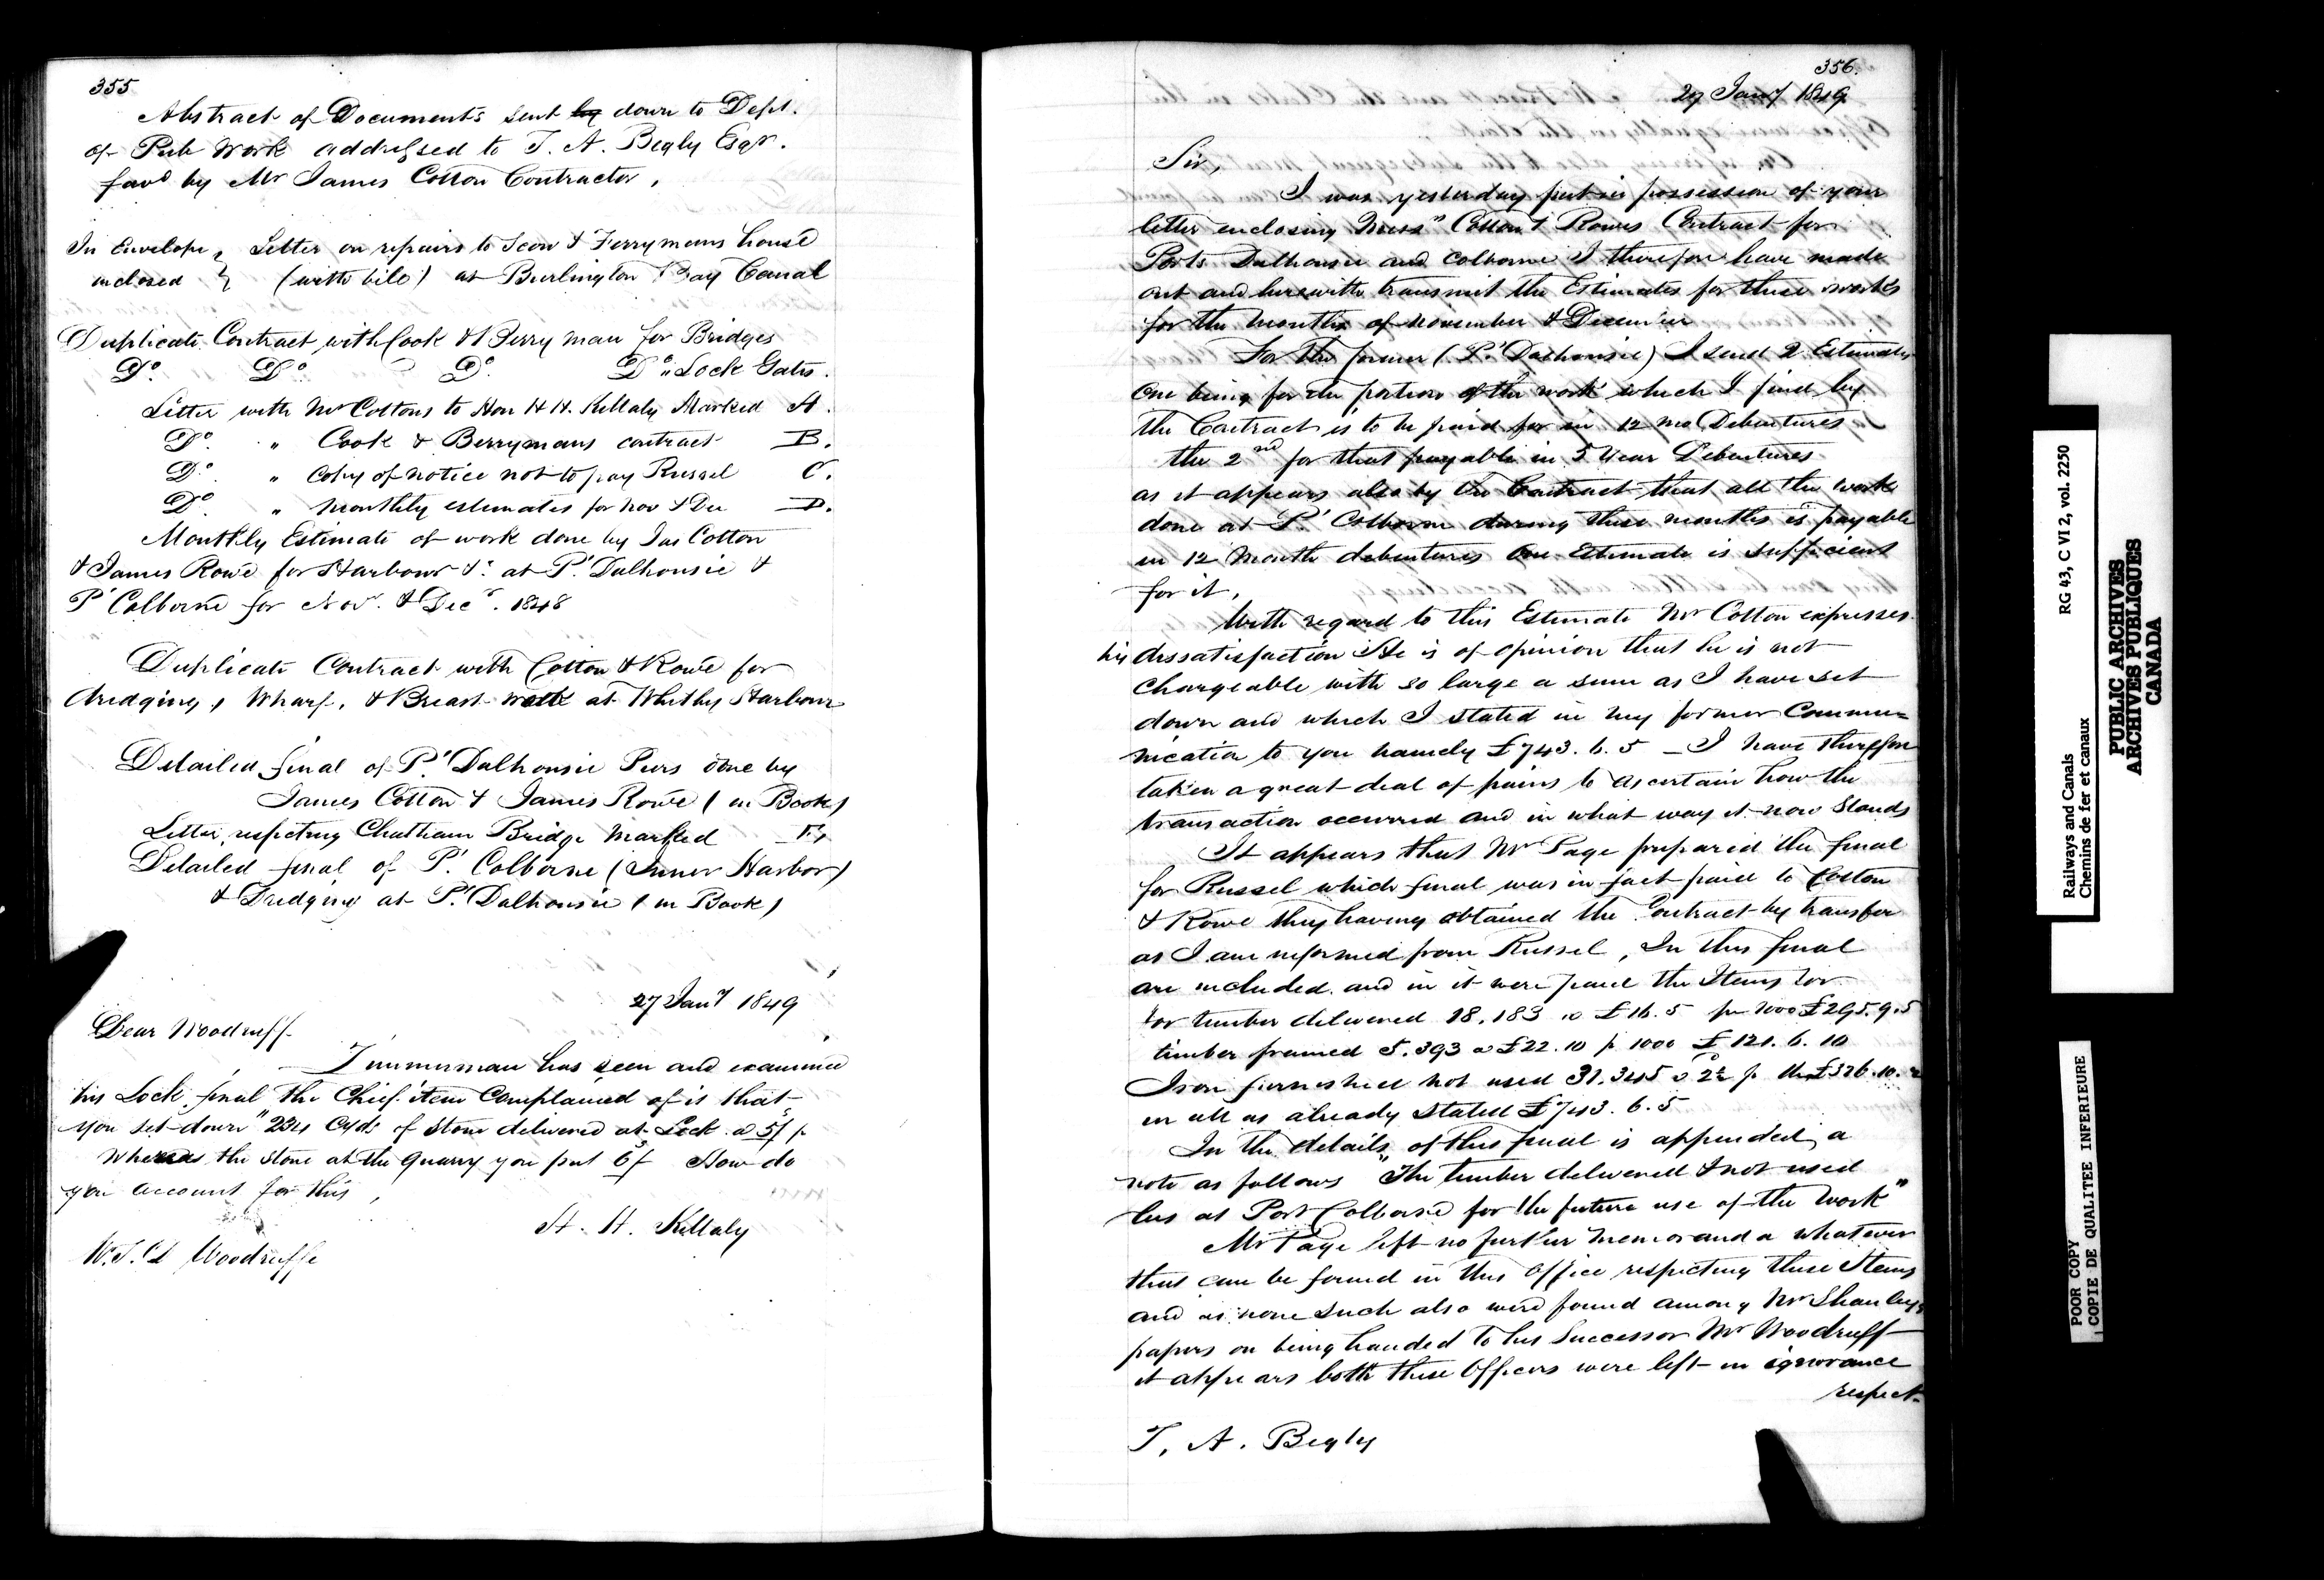 355
Abstract of Documents sent by down to Dept.
of Pub Work addressed to T. A. Begly Esqr.
favd by Mr James Cotton Contractor,
In Envelope } Letter on repairs to Scow & Ferrymans house
inclosed } (with bill) at Burlington Bay Canal
Duplicate Contract with Cook & Berryman for Bridges
Do. Do Do. Do " Lock Gates.
Letter with Mr Cottons to Hon H H. Killaly Marked A.
Do. " Cook & Berrymans contract B.
Do. " Copy of notice not to pay Russel C.
Do. " Monthly estimates for Nov & Dec D.
Monthly Estimate of work done by Jas Cotton
& James Rowe for Harbour &c at Pt. Dalhousie &
Pt Colborne for Novr. & Decr. 1848
Duplicate Contract with Cotton & Rowe for
dredging, Wharf, & Breast work at Whitby Harbour
Detailed final of Pt. Dalhousie Piers done by
James Cotton & James Rowe (in Book)
Letter respecting Chatham Bridge Marked E,
Detailed final of Pt. Colborne (Inner Harbor)
& Dredging at Pt. Dalhousie (in Book)
27 Jany 1849
Dear Woodruff
Zimmerman has seen and examined
his Lock final the Chief item Complained of is that
you set down "234 Cyds of Stone delivered at Lock @ 5/ p
whereas the Stone at the quarry you put 6/ How do
you account for this,
H. H. Killaly
W. J. D Woodruffe
356.
29 Jany 1849
Sir,
I was yesterday put in possession of your
letter enclosing Messrs Cotton & Rowes Contract for
Ports Dalhousie and Colborne I therefore have made
out and herewith transmit the Estimates for these works
for the months of November & December
For the former (Pt. Dalhousie) I send 2 Estimates
One being for the portion of the work which I find by
the Contract is to be paid for in 12 mo Debentures
the 2nd for that payable in 5 Year Debentures
as it appears also by the Contract that all the work
done at Pt. Colborne during these months is payable
in 12 Month debentures One Estimate is sufficient
for it,
With regard to this Estimate Mr Cotton expresses
his dissatisfaction He is of opinion that he is not
Chargeable with so large a sum as I have set
down and which I stated in my former Commu=
nication to you namely £743.6.5 – I have therefore
taken a great deal of pains to ascertain how the
transaction occurred and in what way it now Stands
It appears that Mr Page prepared the final
for Russel which final was in fact paid to Cotton
& Rowe they having obtained the Contract by transfer
as I am informed from Russel, In this final
are included and in it were paid the Items for
for timber delivered 18.183 @ £16.5 pr 1000 £295.9.5
timber framed 5.393 @ £22.10 p 1000 £121.6.10
Iron furnished not used 31.345 @ 2½ p lb £326.10.2
in all as already stated £743.6.5
In the details of this final is appended a
note as follows "The timber delivered & not used
lies at Port Colborne for the future use of the Work"
Mr Page left no further memoranda whatever
that can be found in this Office respecting these Items
and as none such also were found among Mr Shanleys
papers on being handed to his Successor Mr Woodruff
it appears both these Officers were left in ignorance
respect-
T. A. Begly
Railways and Canals
Chemins de fer et canaux
RG 43, C VI 2, vol. 2250
PUBLIC ARCHIVES
ARCHIVES PUBLIQUES
CANADA
POOR COPY
COPIE DE QUALITEE INFERIEURE